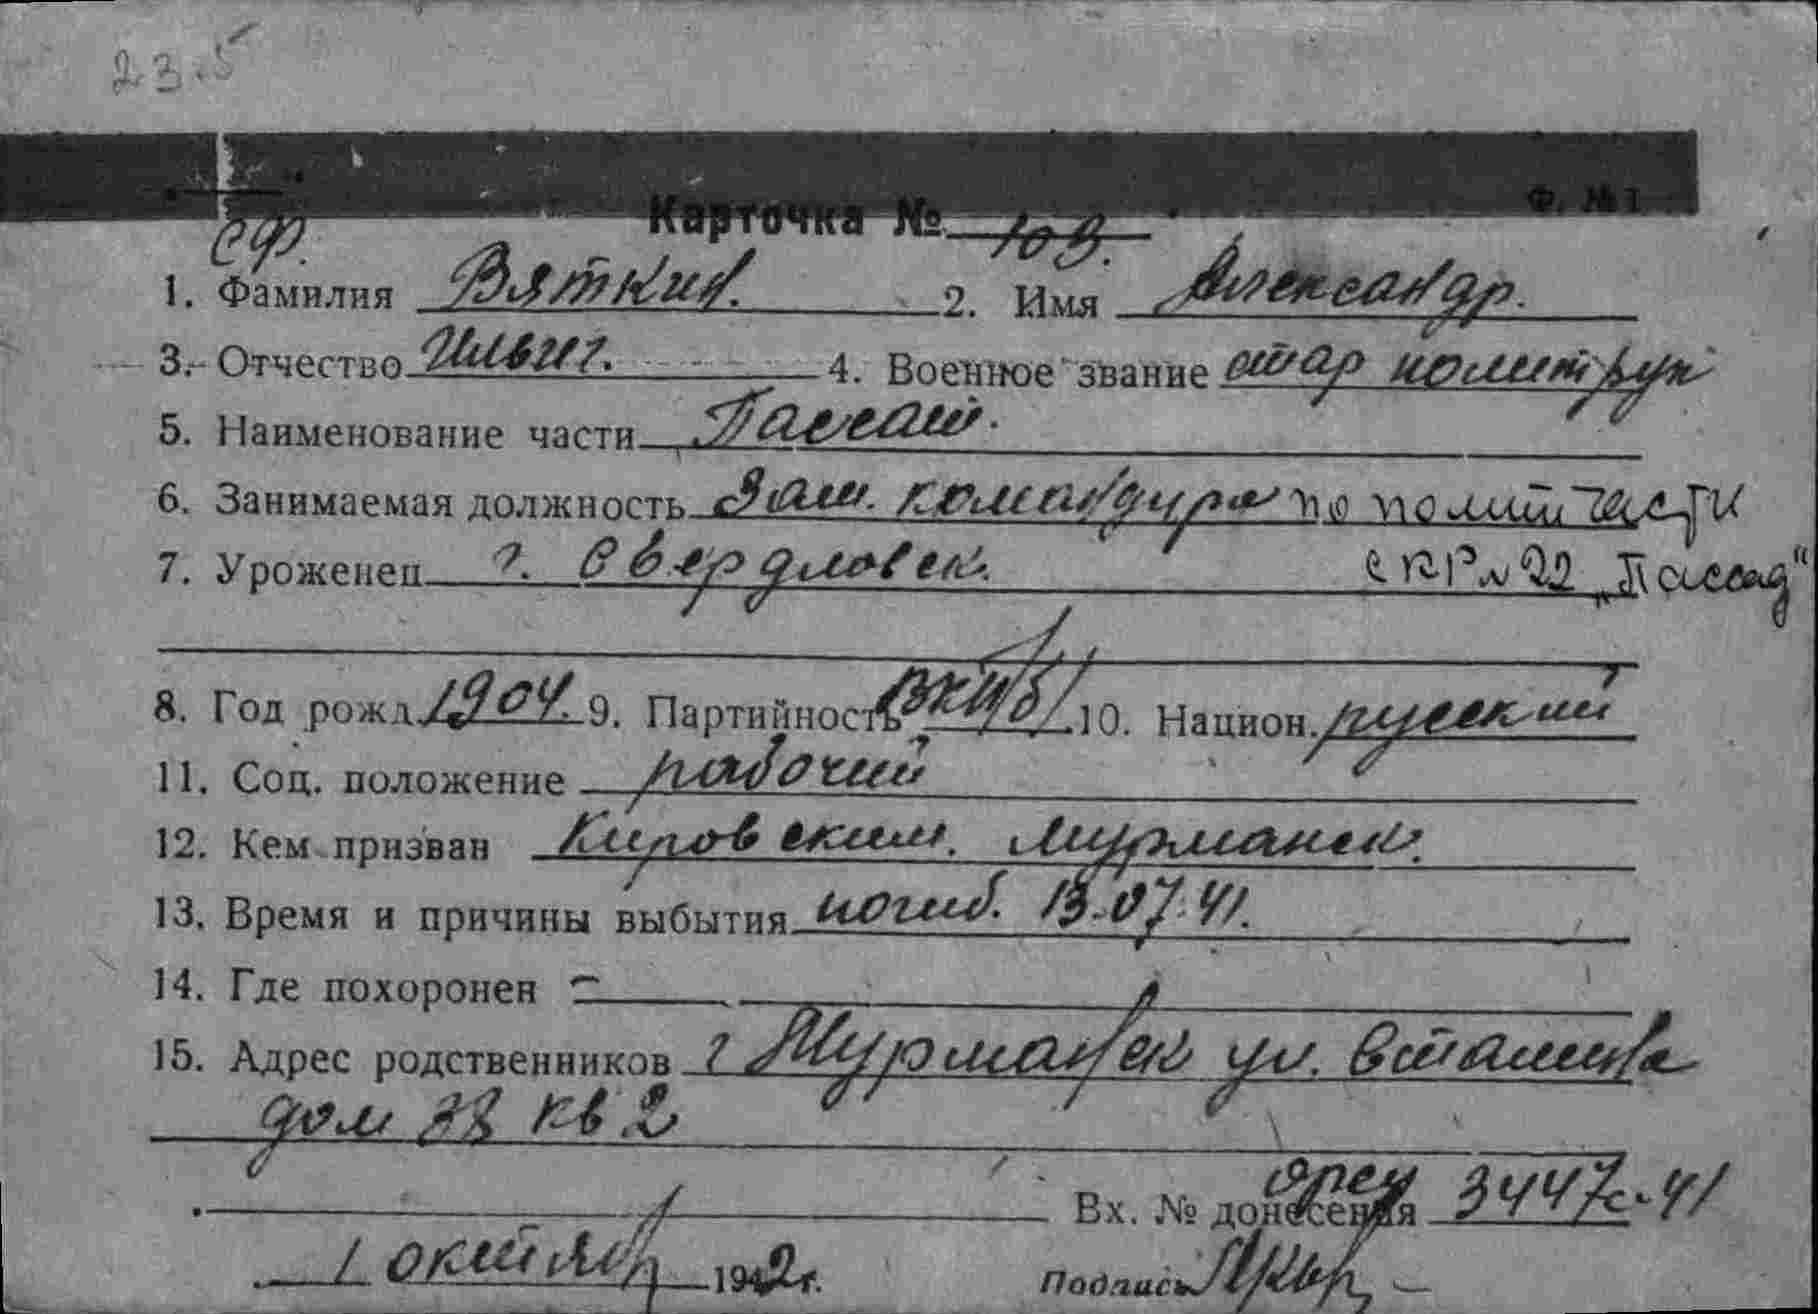 23.5
Ф. № 1
СФ. Карточка № 109.
1. Фамилия Вяткин. 2. Имя Александр.
3. Отчество Ильич. 4. Военное звание стар политрук
5. Наименование части Пассат.
6. Занимаемая должность Зам. командира по политчасти
7. Уроженец г. Свердловск. СКР № 22 „Пассад"
8. Год рожд. 1904. 9. Партийность ВКП/б/ 10. Национ. русский
11. Соц. положение рабочий
12. Кем призван Кировским. Мурманск.
13. Время и причины выбытия погиб. 13.07.41.
14. Где похоронен –
15. Адрес родственников г Мурманск ул. Сталина
дом 38 кв 2
Вх. № донесения 3447с-41
1 октября 1942г. Подпись